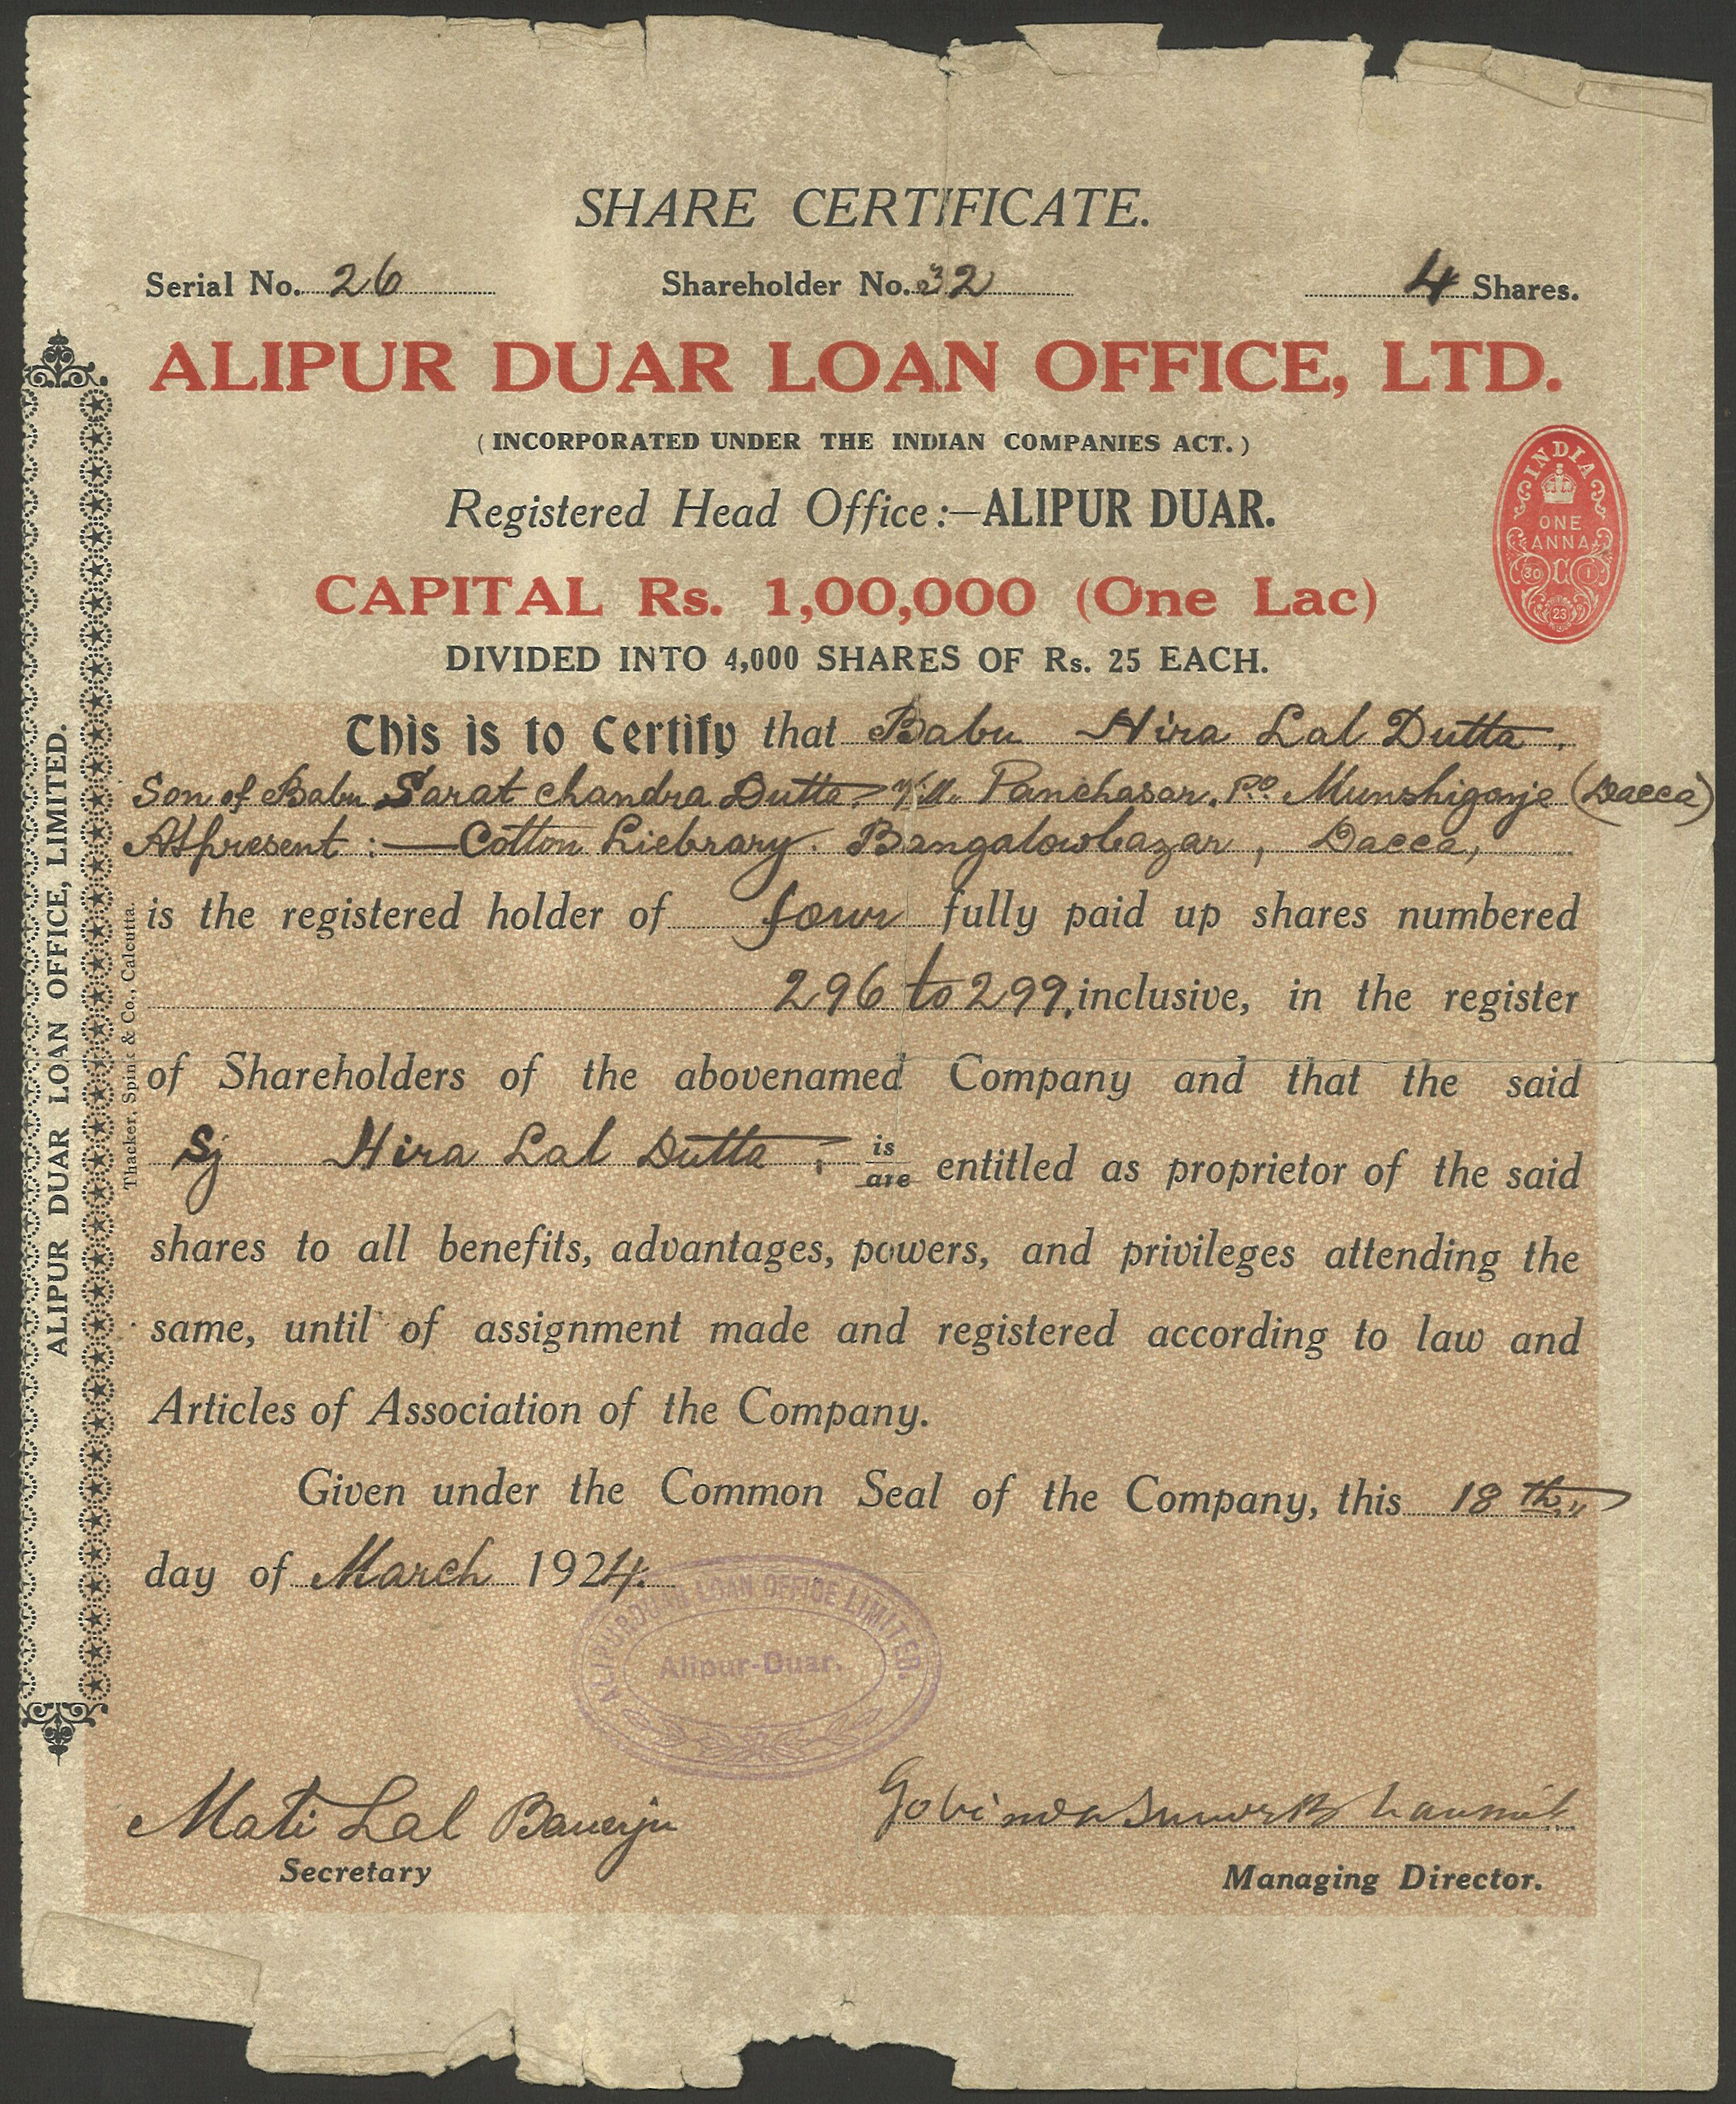 SHARE CERTIFICATE.
Serial No. 26 Shareholder No. 32 4 Shares.
ALIPUR DUAR LOAN OFFICE, LTD.
( INCORPORATED UNDER THE INDIAN COMPANIES ACT. )
Registered Head Office :—ALIPUR DUAR.
INDIA
ONE
ANNA
30 C 1
23
CAPITAL Rs. 1,00,000 (One Lac)
DIVIDED INTO 4,000 SHARES OF Rs. 25 EACH.
This is to Certify that Babu Hira Lal Dutta.
Son of Babu Sarat Chandra Dutta. Vill. Panchasar. P.O. Munshigonje (Dacca)
At present :— Cotton Liebrary. Bangalowbazar, Dacca,
is the registered holder of four fully paid up shares numbered
296 to 299, inclusive, in the register
of Shareholders of the abovenamed Company and that the said
Sj Hira Lal Dutta, is/are entitled as proprietor of the said
shares to all benefits, advantages, powers, and privileges attending the
same, until of assignment made and registered according to law and
Articles of Association of the Company.
Given under the Common Seal of the Company, this 18th
day of March 1924.
ALIPURDUAR LOAN OFFICE LIMITED.
Alipur-Duar.
Mati Lal Banerju
Secretary
Managing Director.
ALIPUR DUAR LOAN OFFICE, LIMITED.
Thacker, Spink & Co., Calcutta.